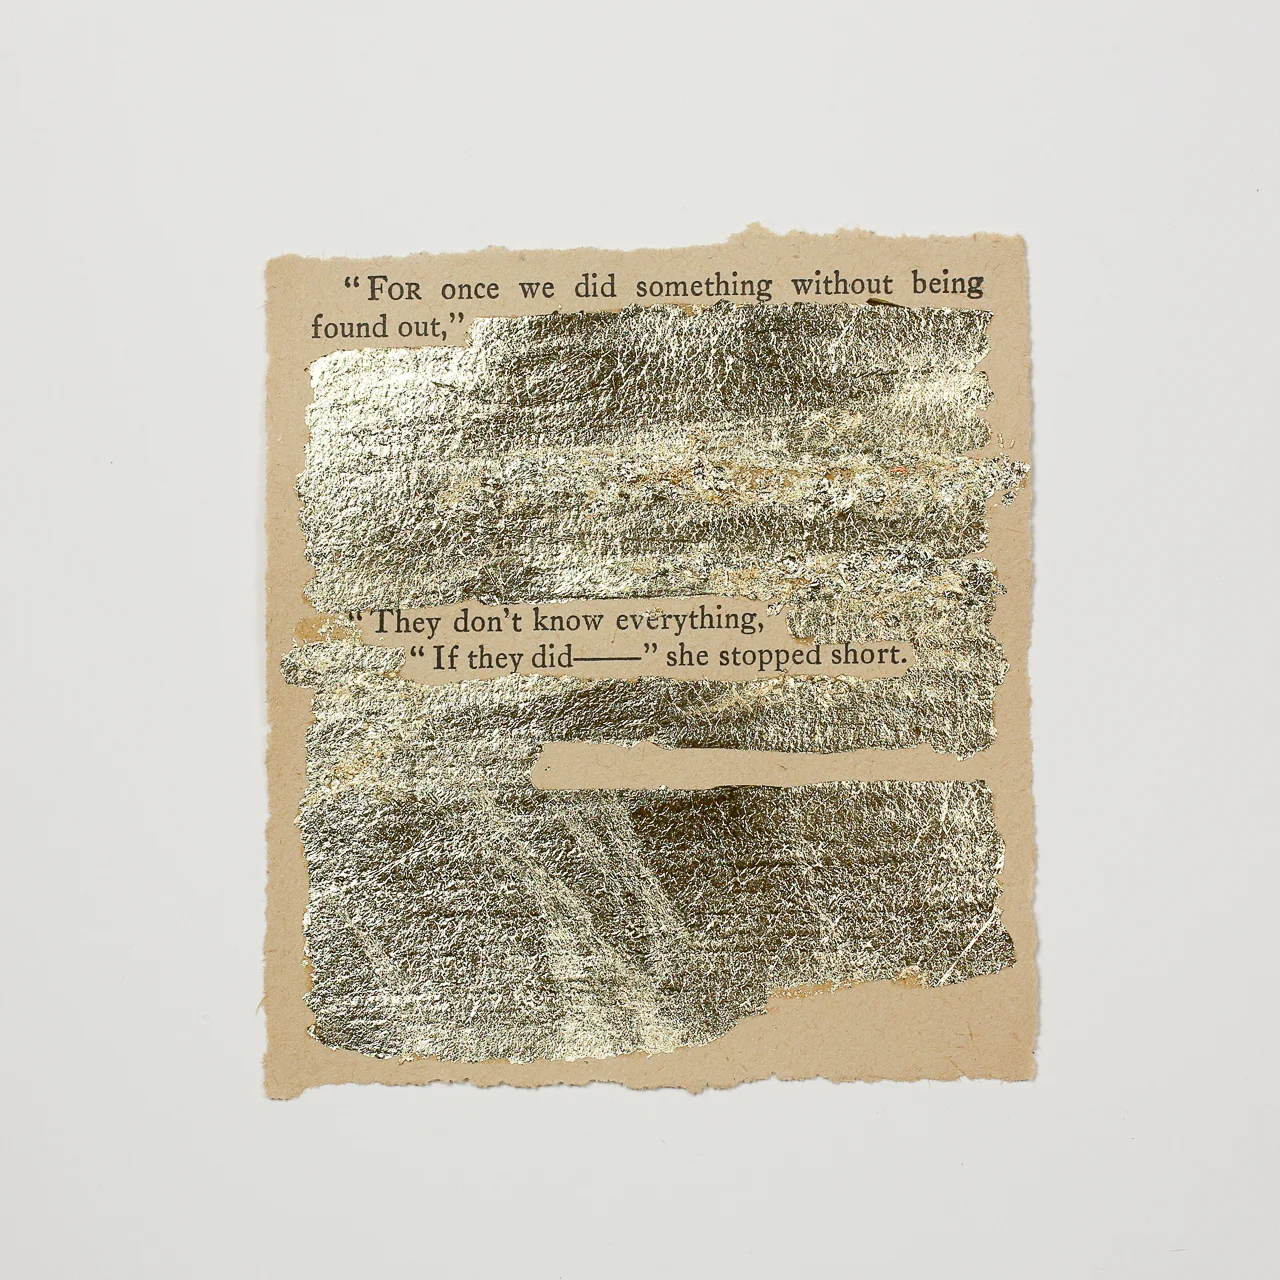 “For once we did something without being
found out,”
“They don’t know everything,
“If they did——” she stopped short.